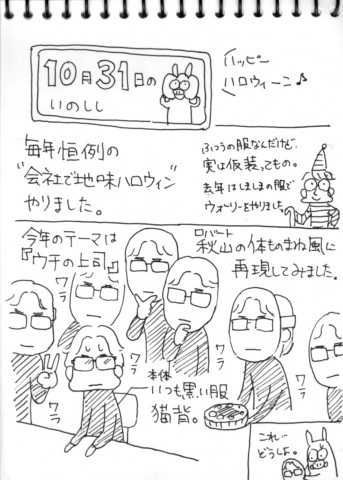 10月31日の
いのしし
ハッピー
ハロウィーン♪
毎年恒例の
“会社で地味ハロウィン”
やりました。
ふつうの服なんだけど、
実は仮装ってもの。
去年はしましまの服で
ウォーリーをやりました
今年のテーマは
『ウチの上司』
ロバート
秋山の体ものまね風に
再現してみました。
ワラ
ワラ
ワラ
ワラ
本体
いつも黒い服
猫背。
これ…
どうしよ。